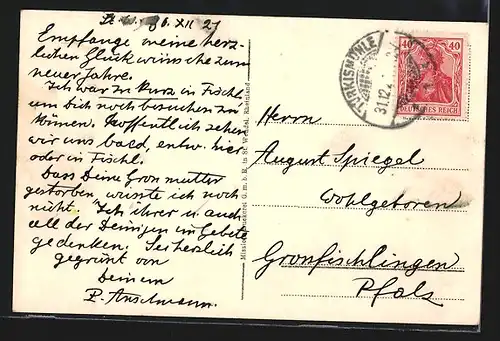 St. W. 30. XII 21
Empfange meine herz-
lichen Glückwünsche zum
neuen Jahre.
Ich war zu kurz in Fischl.
um Dich noch besuchen zu
können. Hoffentlich sehen
wir uns bald, entw. hier
oder in Fischl.
Dass Deine Grossmutter
gestorben, wusste ich noch
nicht. Ich ihrer u. auch
all der Deinigen im Gebete
gedenken. Sei herzlich
gegrüsst von
Deinem
P. Anselmann.
Missionsdruckerei G. m. b. H. in St. Wendel, Rheinland
TÜRKISMÜHLE
31.12.2
40 40
DEUTSCHES REICH
Herrn
August Spiegel
Wohlgeboren
Grossfischlingen
Pfalz